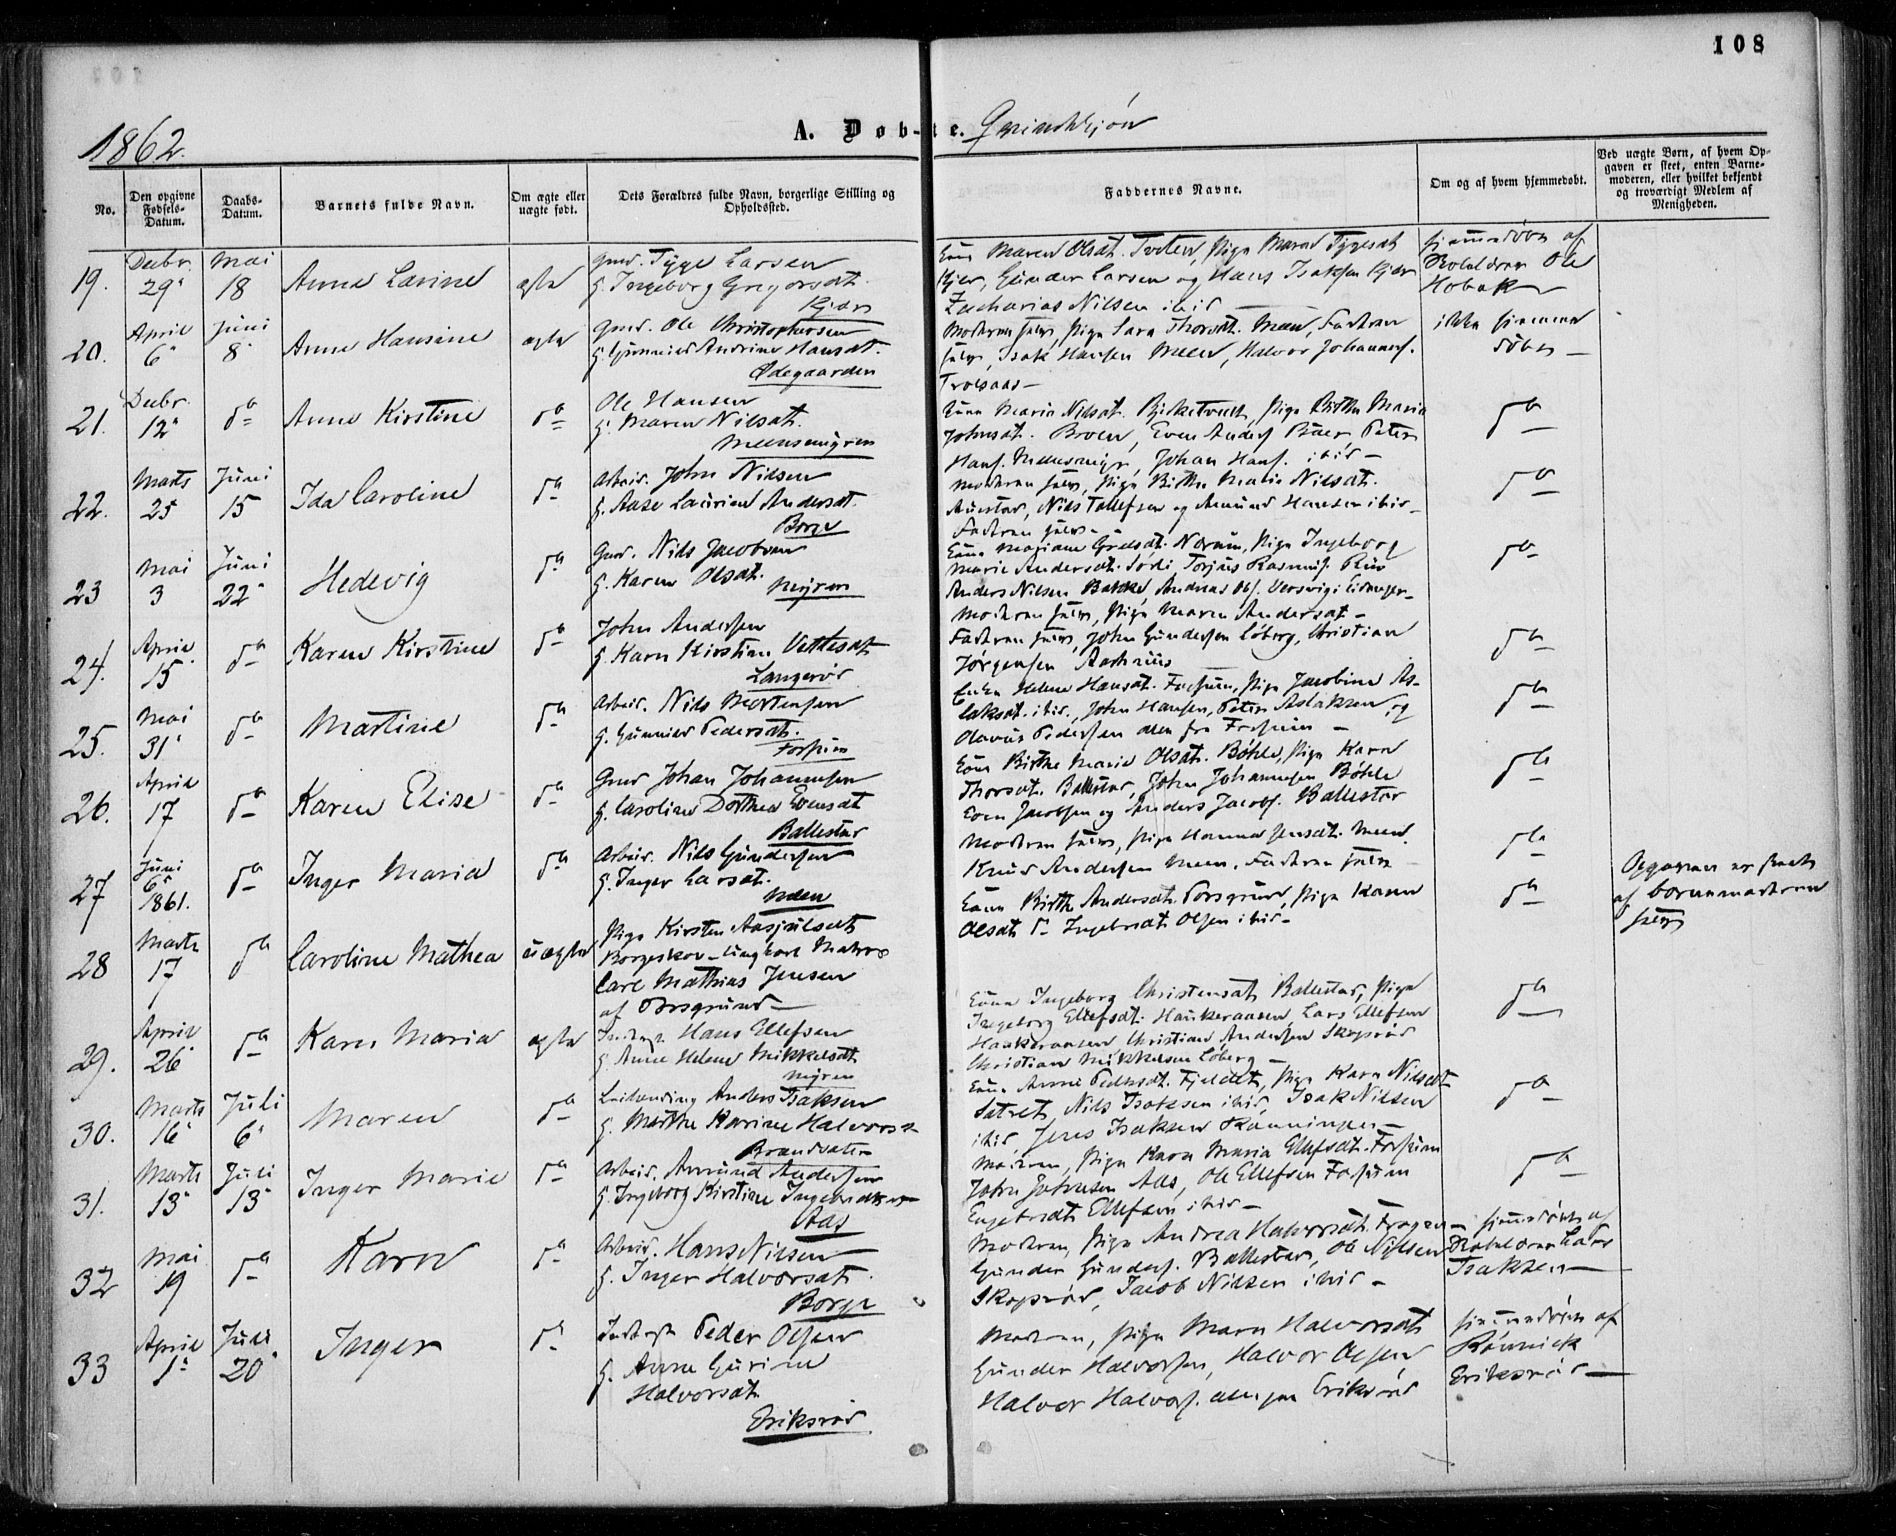 108
1862.
A. Døb-te. Qvindekjøn
No.
Den opgivne Fødsels-Datum.
Daabs-Datum.
Barnets fulde Navn.
Om ægte eller uægte født.
Dets Forældres fulde Navn, borgerlige Stilling og Opholdssted.
Faddernes Navne.
Om og af hvem hjemmedøbt.
Ved uægte Børn, af hvem Opgaven er skeet, enten Barnemoderen, eller hvilket bekjendt og troværdigt Medlem af Menigheden.
19. Decbr. 29 Mai 18 Anne Lavine ægte
Gmd. Tyge Larsen
H. Ingeborg Gregorsdt.
Kjær
Kone Maren Olsdt. Tveten, Pige Maren Tygesdt
Kjær, Gunder Larsen og Hans Isaksen Kjær
Zacharias Nilsen ibid
hjemmedøbt af
Skolelærer Ole
Hobæk
20. April 6 Juni 8 Anne Hansine ægte
Gmd. Ole Christophersen
H. Gunnild Andrine Hansdt.
Ødegaarden
Moderen selv, Pige Sara Thorsdt. Meen, Faderen
selv, Isak Hansen Meen, Halvor Johanness.
Trolsaas
ikke hjemme
døbt
21. Decbr. 12 do Anne Kirstine do
Ole Hansen
H. Maren Nilsdt.
Meensmyren
Kone Maria Nilsdt. Birketvedt, Pige Birthe Maria
Johnsdt. Broen, Even Anders Buer, Peter
Hans. Meensmyr, Johan Hans. ibid
do
22. Marts 25 Juni 15 Ida Caroline do
Arbeid. John Nilsen
H. Aase Laurine Andersdt.
Borge
Moderen selv, Pige Birthe Maria Nilsdt.
Nils Tollefsen og Amund Hansen ibid
Faderen selv
do
23 Mai 3 Juni 22 Hedevig do
Gmd. Nils Jacobsen
H. Karen Olsdt.
Myren
Kone Mariane Norum, Pige Ingeborg
Marie Andersdt. Torjus Rasmus.
Anders Nilsen Bakke, Andreas Ols.
do
24. April 15 do Karen Kirstine do
John Andersen
H. Karen Kirstine Vettesdt
Langerør
Moderen selv, Pige Maren Andersdt
Faderen selv, John Gundersen Löberg, Christian
Jørgensen
do
25. Mai 31 do Martine do
Arbeid. Nils Mortensen
H. Gunnild Pedersdt.
Fossum
Enke Helene Hansdt. Fossum, Pige Jacobine As-
laksdt. ibid., John Hansen, Peter Aslaksen og
Olavus Pedersen alle fra Fossum
do
26. April 17 do Karen Elise do
Gmd Johan Johannesen
H. Caroline Dorthea Evensdt
Ballestad
Kone Birthe Maria Olsdt. Bøhle, Pige Karen
Thorsdt. Ballestad, John Johannesen Bøhle
Even Jacobsen og Anders Jacobs. Ballestad
do
27 Juni 6 1861. do Inger Maria do
Arbeid. Nils Gundersen
H. Inger Larsdt.
Meen
Moderen selv, Pige Hanna Jensdt. Meen.
Knud Andersen Meen, Faderen selv
do
28 Marts 17 do Caroline Mathea uægte
Pige Kirsten Aasjulsdt
Borgeskov Ungkarl Matros
Carl Mathias Jensen
af Porsgrund
Kone Birthe Andersdt. Porsgrund, Pige Karen
Olsdt do Ingebredt Olsen ibid
do
Opgaven er skeet
af barnemoderen
selv
29. April 26 do Karen Maria ægte
Inderst Hans Ellefsen
H. Anne Helene Mikkelsdt
Myren
Kone Ingeborg Christensdt Ballestad, Pige
Ingeborg Ellefsdt. Haukeraasen, Lars Ellefsen
Haukeraasen Christian Andersen Skoprød
Christian Mikkelsen Löberg
do
30. Marts 16 Juli 6 Maren do
Leilending Anders Isaksen
H. Marthe Karine Halvorsdt
Brandvaten
Kone Anne Pedersdt. Fjeldet, Pige Karen Nilsdt
Sætret, Nils Isaksen ibid, Isak Nilsen
ibid Jens Isaksen
do
31. Marts 13 Juli 13 Inger Marie do
Arbeid. Amund Andersen
H. Ingeborg Kirstine
Aas
Moderen, Pige Karen Maria Ellefsdt. Fossum
John Johnsen Aas, Ole Ellefsen Fossum
Engebredt Ellefsen ibid
do
32 Mai 19 do Karen do
Arbeid. Hans Nilsen
H. Inger Halvorsdt.
Borge
Moderen, Pige Andrea Halvorsdt.
Gunder Gunders. Ballestad, Ole Nilsen
Skoprød, Jacob Nilsen ibid
hjemmedøbt af
Skolelærer Lars
Isaksen
33 April 1 Juli 20 Inger do
Inderst Peder Olsen
H. Anne Gurine
Halvorsdt.
Eriksrød
Moderen, Pige Maren Halvorsdt
Gunder Halvorsen, Halvor Olsen
Halvor Halvors. alle fra Eriksrød
hjemmedøbt af
Eriksrød